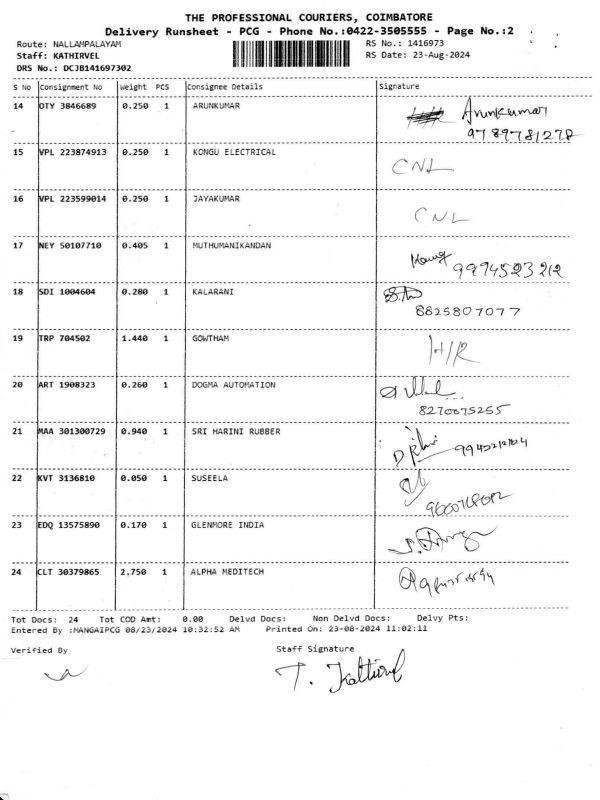 THE PROFESSIONAL COURIERS, COIMBATORE
Delivery Runsheet - PCG - Phone No.:0422-3505555 - Page No.:2
Route: NALLAMPALAYAM RS No.: 1416973
Staff: KATHIRVEL RS Date: 23-Aug-2024
DRS No.: DCJB141697302
S No Consignment No Weight PCS Consignee Details Signature
14 OTY 3846689 0.250 1 ARUNKUMAR Arunkumar
9789781278
15 VPL 223874913 0.250 1 KONGU ELECTRICAL CNL
16 VPL 223599014 0.250 1 JAYAKUMAR CNL
17 NEY 50107710 0.405 1 MUTHUMANIKANDAN
9994523212
18 SDI 1004604 0.280 1 KALARANI
8825807077
19 TRP 704502 1.440 1 GOWTHAM H/R
20 ART 1908323 0.260 1 DOGMA AUTOMATION
8270075255
21 MAA 301300729 0.940 1 SRI HARINI RUBBER
22 KVT 3136810 0.050 1 SUSEELA
23 EDQ 13575890 0.170 1 GLENMORE INDIA
24 CLT 30379865 2,750 1 ALPHA MEDITECH
Tot Docs: 24 Tot COD Amt: 0.00 Delvd Docs: Non Delvd Docs: Delvy Pts:
Entered By :MANGAIPCG 08/23/2024 10:32:52 AM Printed On: 23-08-2024 11:02:11
Verified By Staff Signature